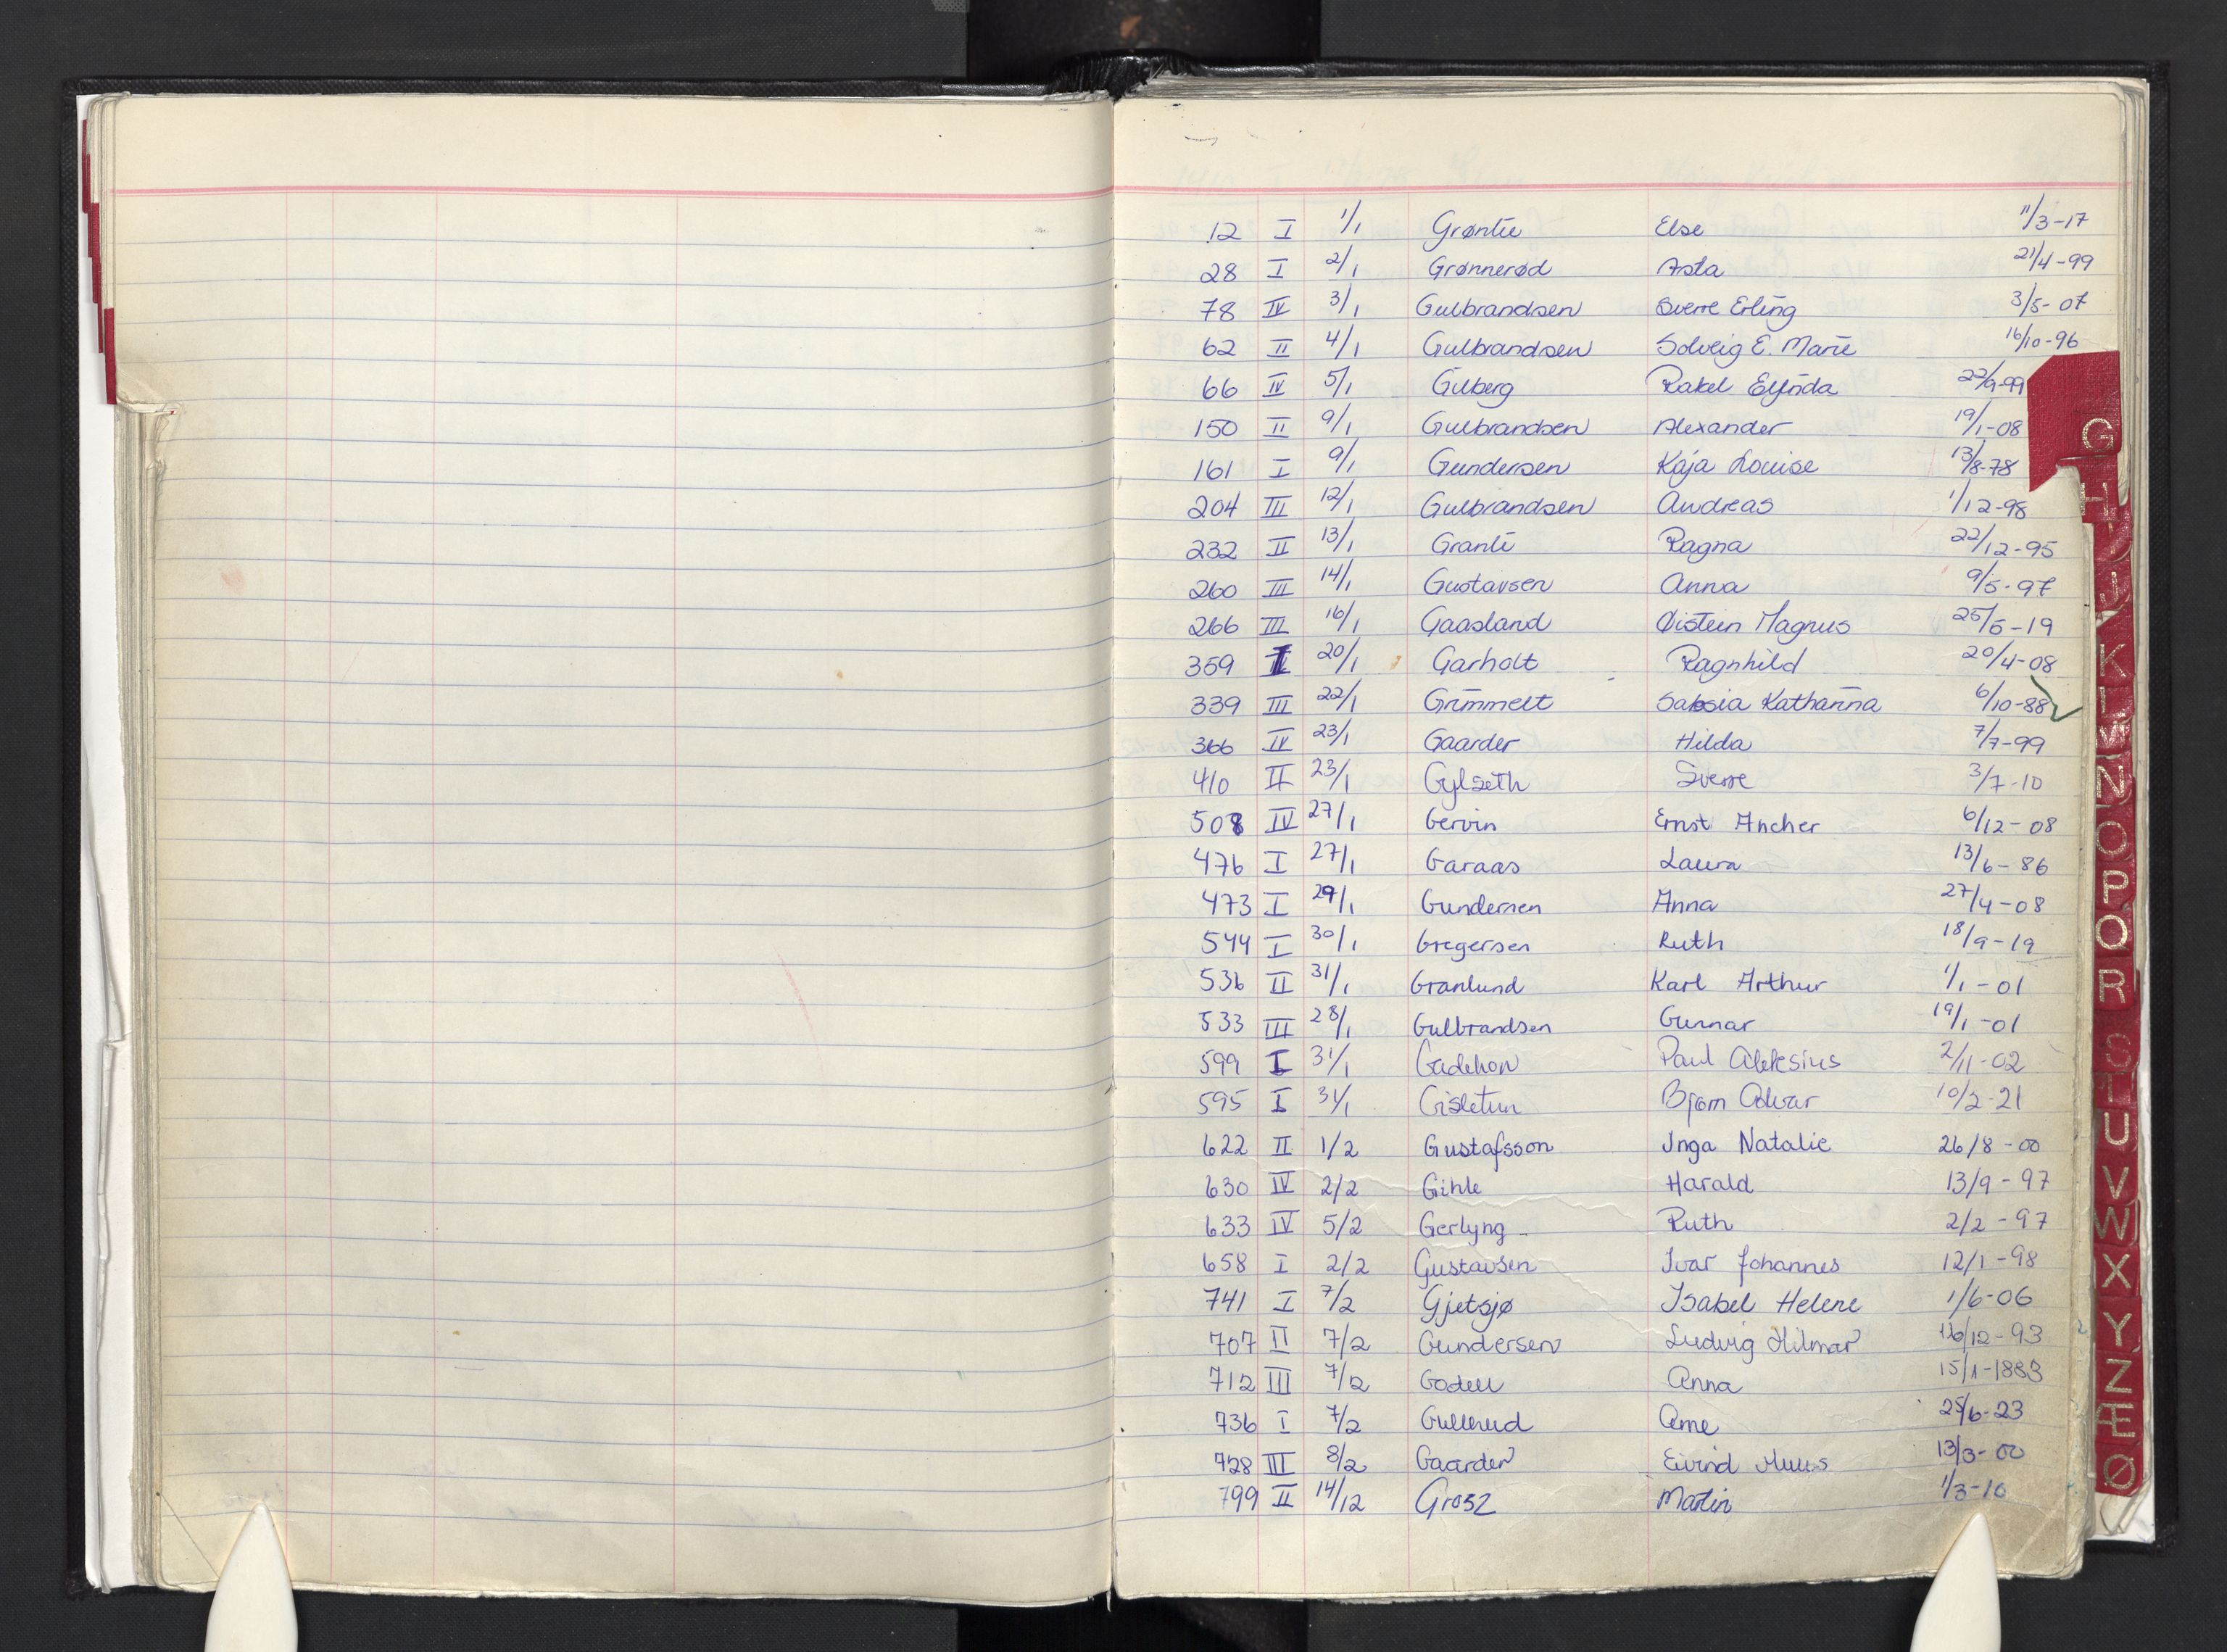 12 I 1/1 Grøntie Else 11/3-17
28 I 2/1 Grønnerød Asta 21/4-99
78 IV 3/1 Gulbrandsen Sverre Erling 3/5-07
62 II 4/1 Gulbrandsen Solveig E. Marie 16/10-96
66 IV 5/1 Gilberg Rakel Elfrida 22/9-99
150 II 9/1 Gulbrandsen Alexander 19/1-08
161 I 9/1 Gundersen Kaja Louise 13/8-78
204 III 12/1 Gulbrandsen Andreas 1/12-98
232 II 13/1 Granli Ragna 22/12-95
260 III 14/1 Gustavsen Anna 9/5-97
266 III 16/1 Gaasland Øistein Magnus 25/5-19
359 I 20/1 Garholt Ragnhild 20/4-08
339 III 22/1 Grimmelt Katharina 6/10-88
366 IV 23/1 Gaarder Hilda 7/7-99
410 II 23/1 Gylseth Sverre 3/7-10
508 IV 27/1 Gervin Ernst Ancher 6/12-08
476 I 27/1 Garaas Laura 13/6-86
473 I 29/1 Gundersen Anna 27/4-08
544 I 30/1 Gregersen Ruth 18/9-19
536 II 31/1 Granlund Karl Arthur 1/1-01
533 III 28/1 Gulbrandsen Gunnar 19/1-01
599 I 31/1 Paul Aleksius 2/11-02
595 I 31/1 Gisletun Bjørn Odvar 10/2-21
622 II 1/2 Gustafsson Inga Natalie 26/8-00
630 IV 2/2 Gihle Harald 13/9-97
633 IV 5/2 Gerlyng Ruth 2/2-97
658 I 2/2 Gustavsen Ivar Johannes 12/1-98
741 I 7/2 Gjetsjø Isabel Helene 1/6-06
707 II 7/2 Gundersen Ludvig Hilmar 16/12-93
712 III 7/2 Godell Anna 15/1-1883
736 I 7/2 Gullerud Arne 25/6-23
728 III 8/2 Gaarder Eivind Muus 13/3-00
799 II 14/12 Grosz Martin 1/3-10
G
H
I
J
K
L
M
N
O
P
Q
R
S
T
U
V
W
X
Y
Z
Æ
Ø